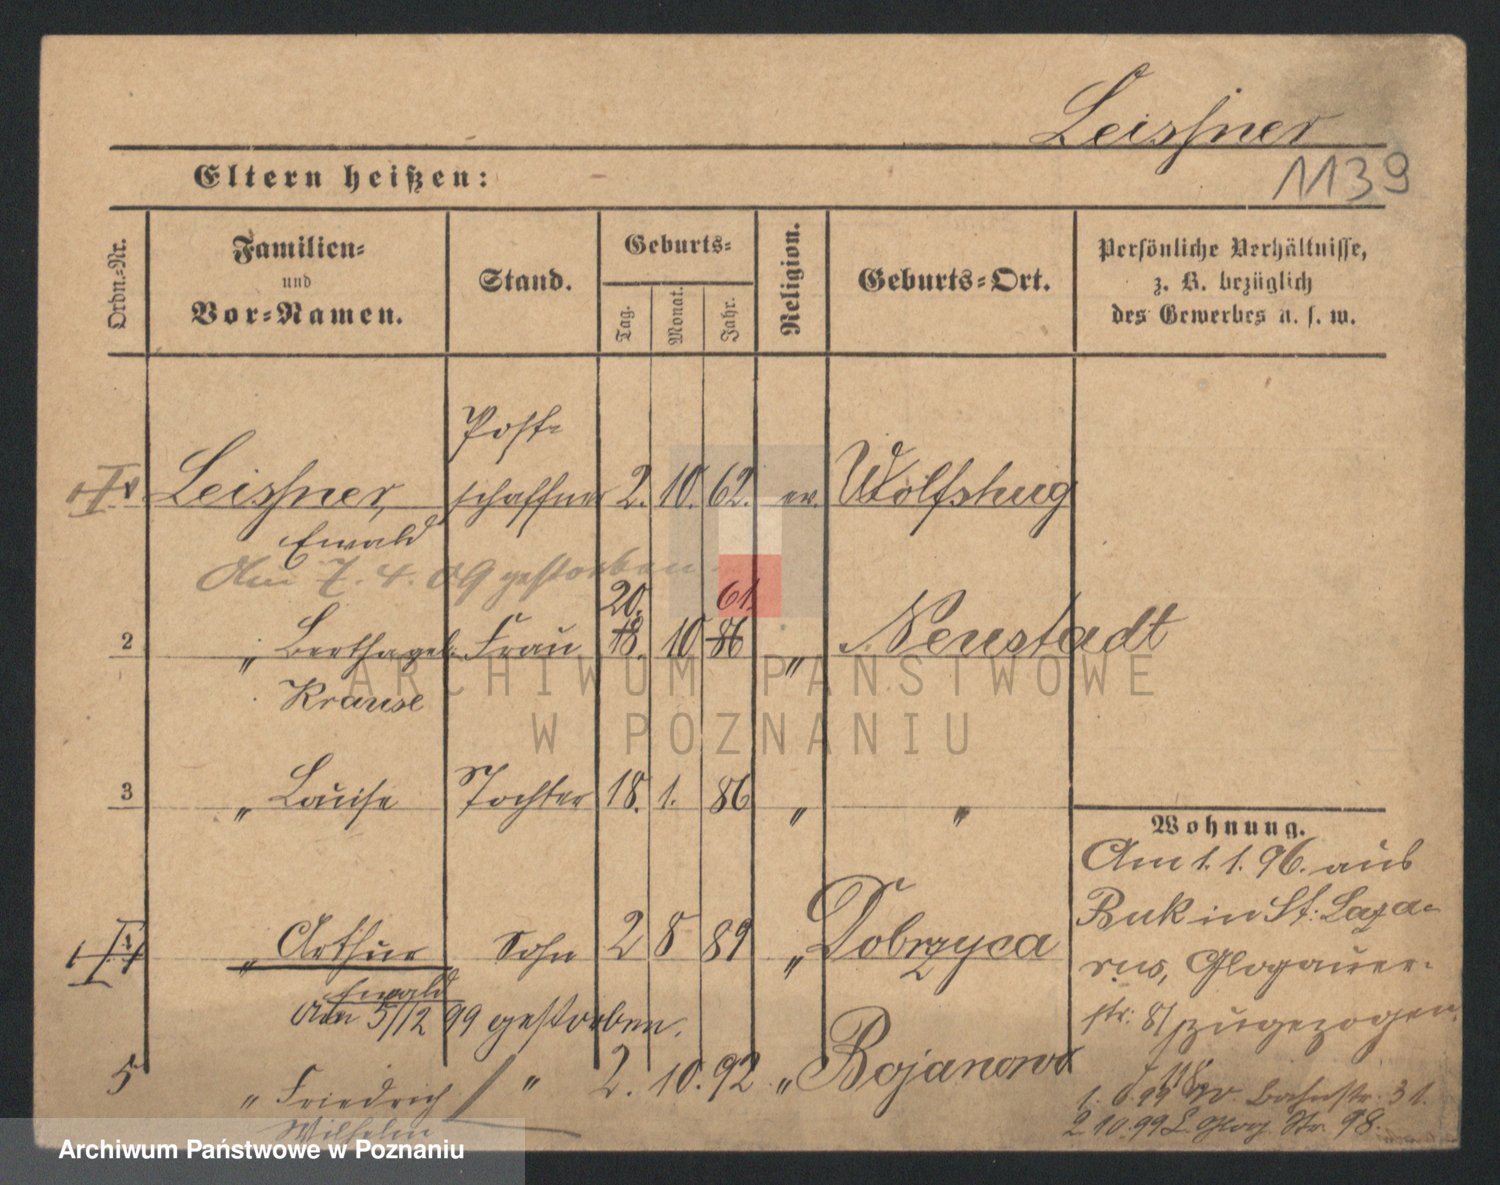 Leissner
1139
Eltern heißen:
Ordn.-Nr.
Familien-
und
Vor-Namen.
Stand.
Geburts-
Tag.
Monat.
Jahr.
Religion.
Geburts-Ort.
Persönliche Verhältnisse,
z. B. bezüglich
des Gewerbes u. s. w.
Post-
Leissner, schaffner 2. 10. 62. ev. Wolfshug
Ewald
Am 7. 4. 09 gestorben
20. 61.
2 " Bertha geb. Frau 18. 10 86 " Neustadt
Krause
3 " Louise Tochter 18. 1. 86 " "
Wohnung.
Am 1. 1. 96. aus
Buk in St. Laza-
rus, Glogauer-
str. 81 zugezogen.
" Arthur Sohn 2 8 89 " Dobrzyca
Ewald
Am 5/12 99 gestorben.
5 " Friedrich " 2. 10. 92 " Bojanowo
Wilhelm
Bahnstr. 31.
2 10. 99 Glog. Str. 98.
ARCHIWUM PAŃSTWOWE
W POZNANIU
Archiwum Państwowe w Poznaniu